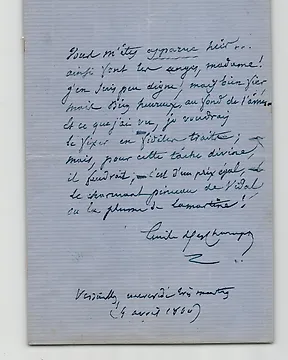 Vous m'êtes apparue hier...
ainsi font les anges, madame!
J'en suis peu digne; mais bien fier
mais bien heureux, au fond de l'âme.
Et ce que j'ai vu, je voudrais
le fixer en fidèles traits;
mais, pour cette tâche divine,
il faudrait, — c'est d'un prix égal, —
le charmant pinceau de Vidal
ou la plume de Lamartine!
Emile Deschamps
Versailles, mercredi
(4 avril 1860)